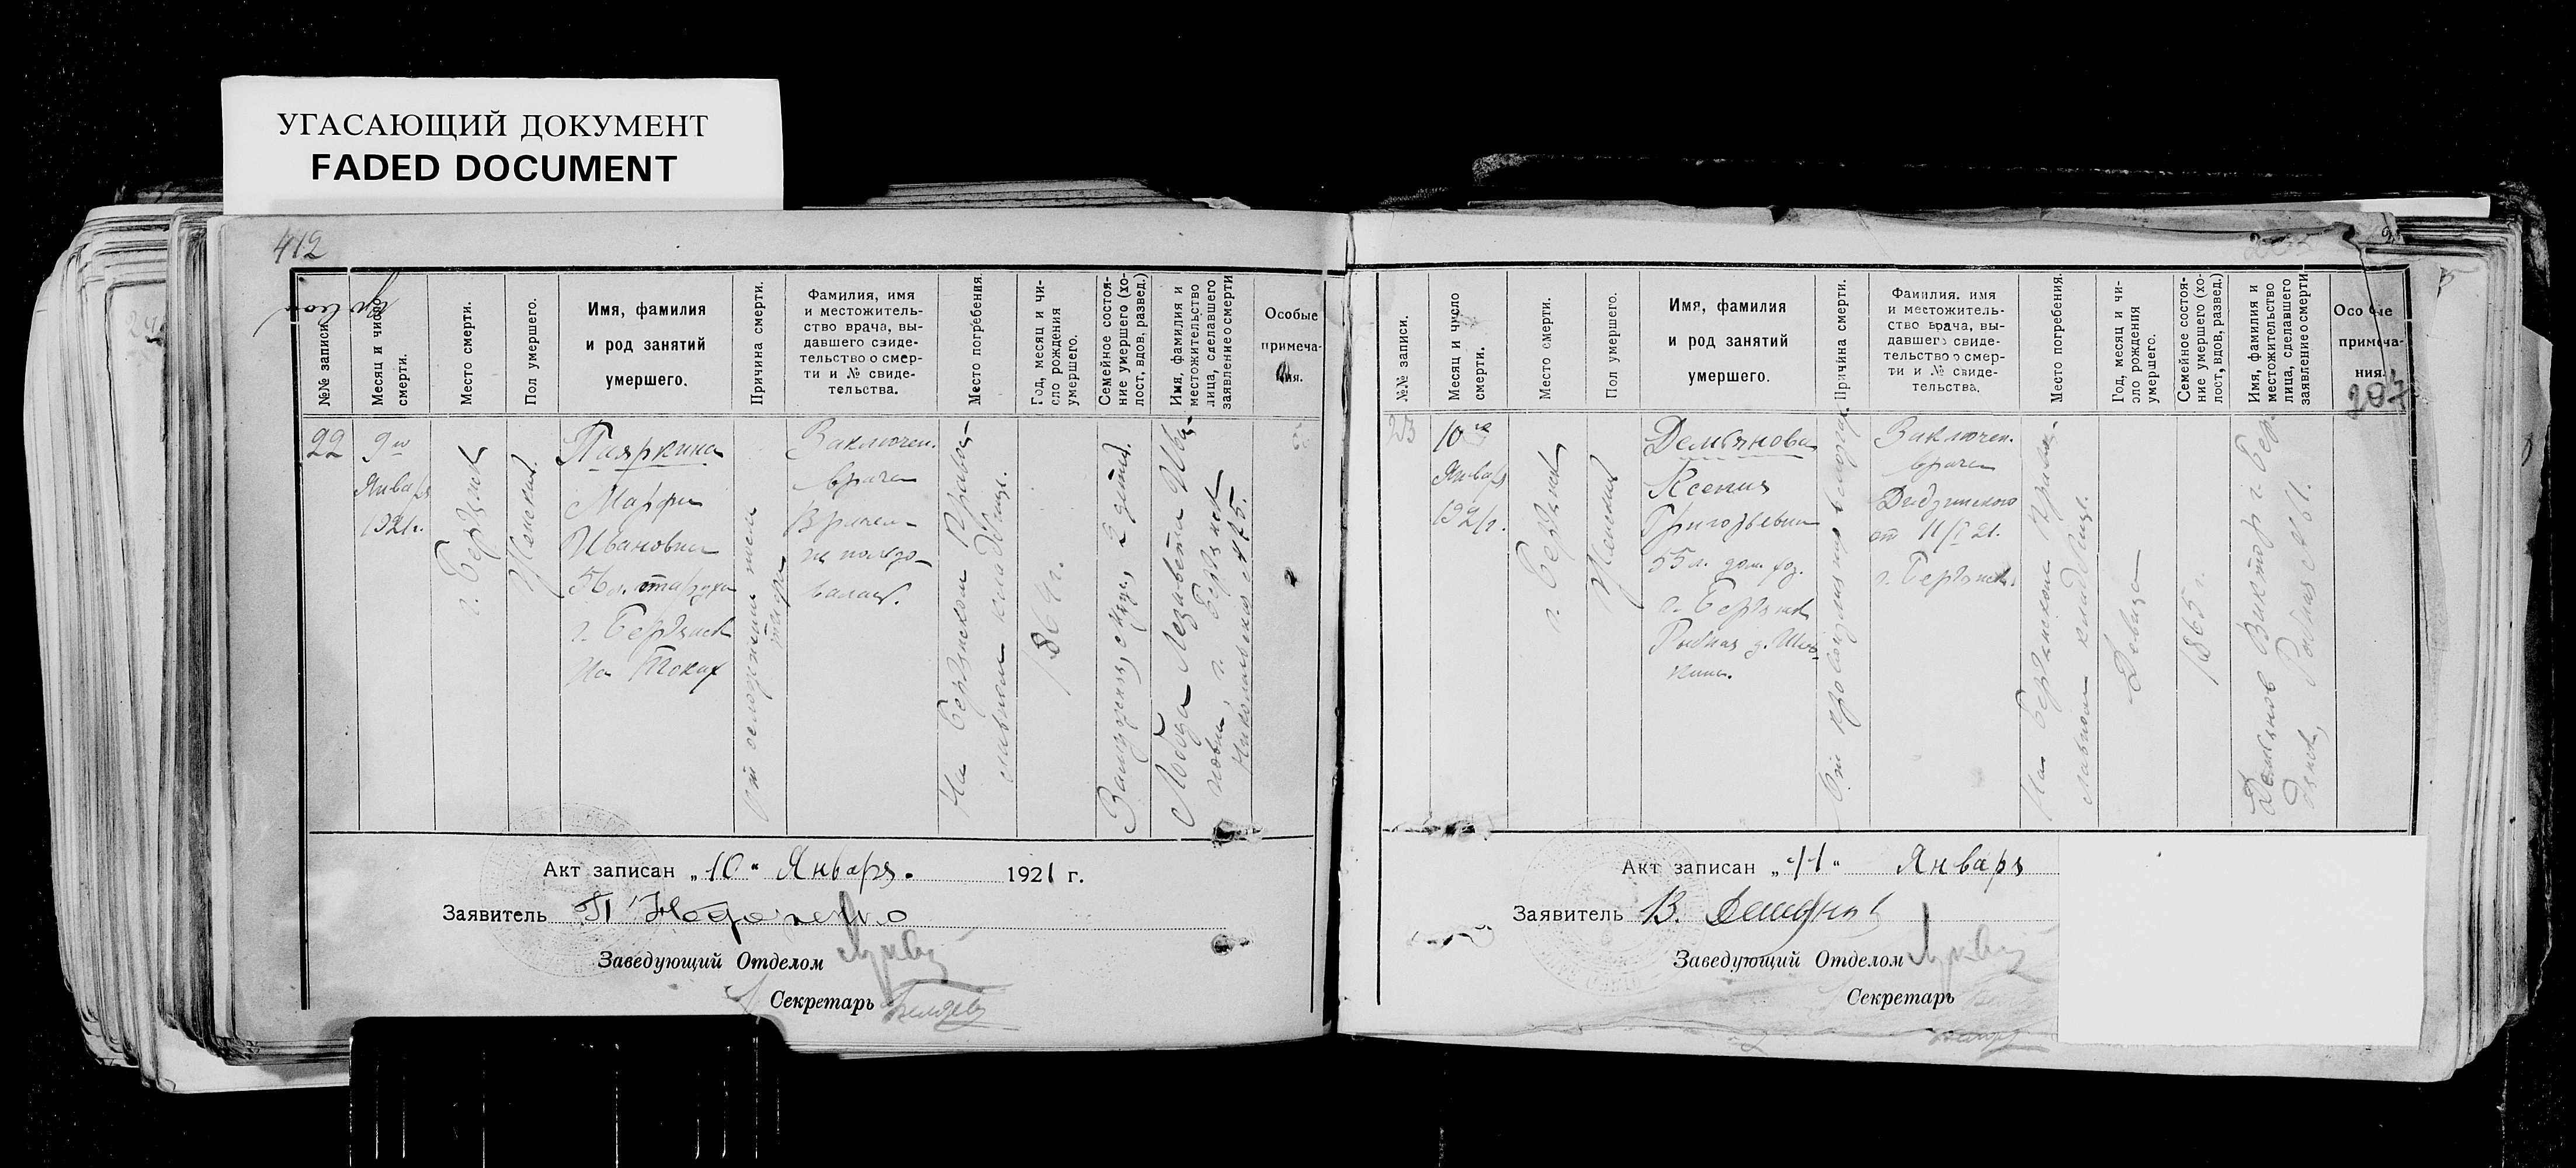 УГАСАЮЩИЙ ДОКУМЕНТ
FADED DOCUMENT
412
№№ записи.
Месяц и число
смерти.
Место смерти.
Пол умершего.
Имя, фамилия
и род занятий
умершего.
Причина смерти.
Фамилия, имя
и местожитель-
ство врача, вы-
давшего свиде-
тельство о смер-
ти и № свиде-
тельства.
Место погребения.
Год, месяц и чи-
сло рождения
умершего.
Семейное состоя-
ние умершего (хо-
лост, вдов, развед.)
Имя, фамилия и
местожительство
лица, сделавшего
заявление о смерти
Особые
примеча-
ния.
22
9го
Января
1921г.
г. Бердянск
Женский.
Марфа
Ивановна
56 л. старуха
г. Бердянск
На
От
Заключен.
врача
Врачем
не
На Бердянском Право-
славном кладбище.
1864 г.
Замужняя, 2 детей.
Лобода Лезавета
г. Бердянск
Акт записан „10“ Января. 1921 г.
Заявитель
Заведующий Отделом
Секретарь
207
№№ записи.
Месяц и число
смерти.
Место смерти.
Пол умершего.
Имя, фамилия
и род занятий
умершего.
Причина смерти.
Фамилия, имя
и местожитель-
ство врача, вы-
давшего свиде-
тельство о смер-
ти и № свиде-
тельства.
Место погребения.
Год, месяц и чи-
сло рождения
умершего.
Семейное состоя-
ние умершего (хо-
лост, вдов, развед.)
Имя, фамилия и
местожительство
лица, сделавшего
заявление о смерти
Особые
примеча-
ния.
23
10го
Января
1921г.
г. Бердянск
Женский
Демьянова
Ксения
Григорьевна
55 л. дом. хоз.
г. Бердянск
Рыбная д.
От кровоизлияния в мозг
Заключен.
врача
от 11/I 21.
г. Бердянск
На Бердянском Право-
славном кладбище.
Девица
1865 г.
Демьянов Виктор г. Бер-
дянск, Рыбная № 61.
Акт записан „11“ Января
Заявитель В. Демьянов
Заведующий Отделом
Секретарь